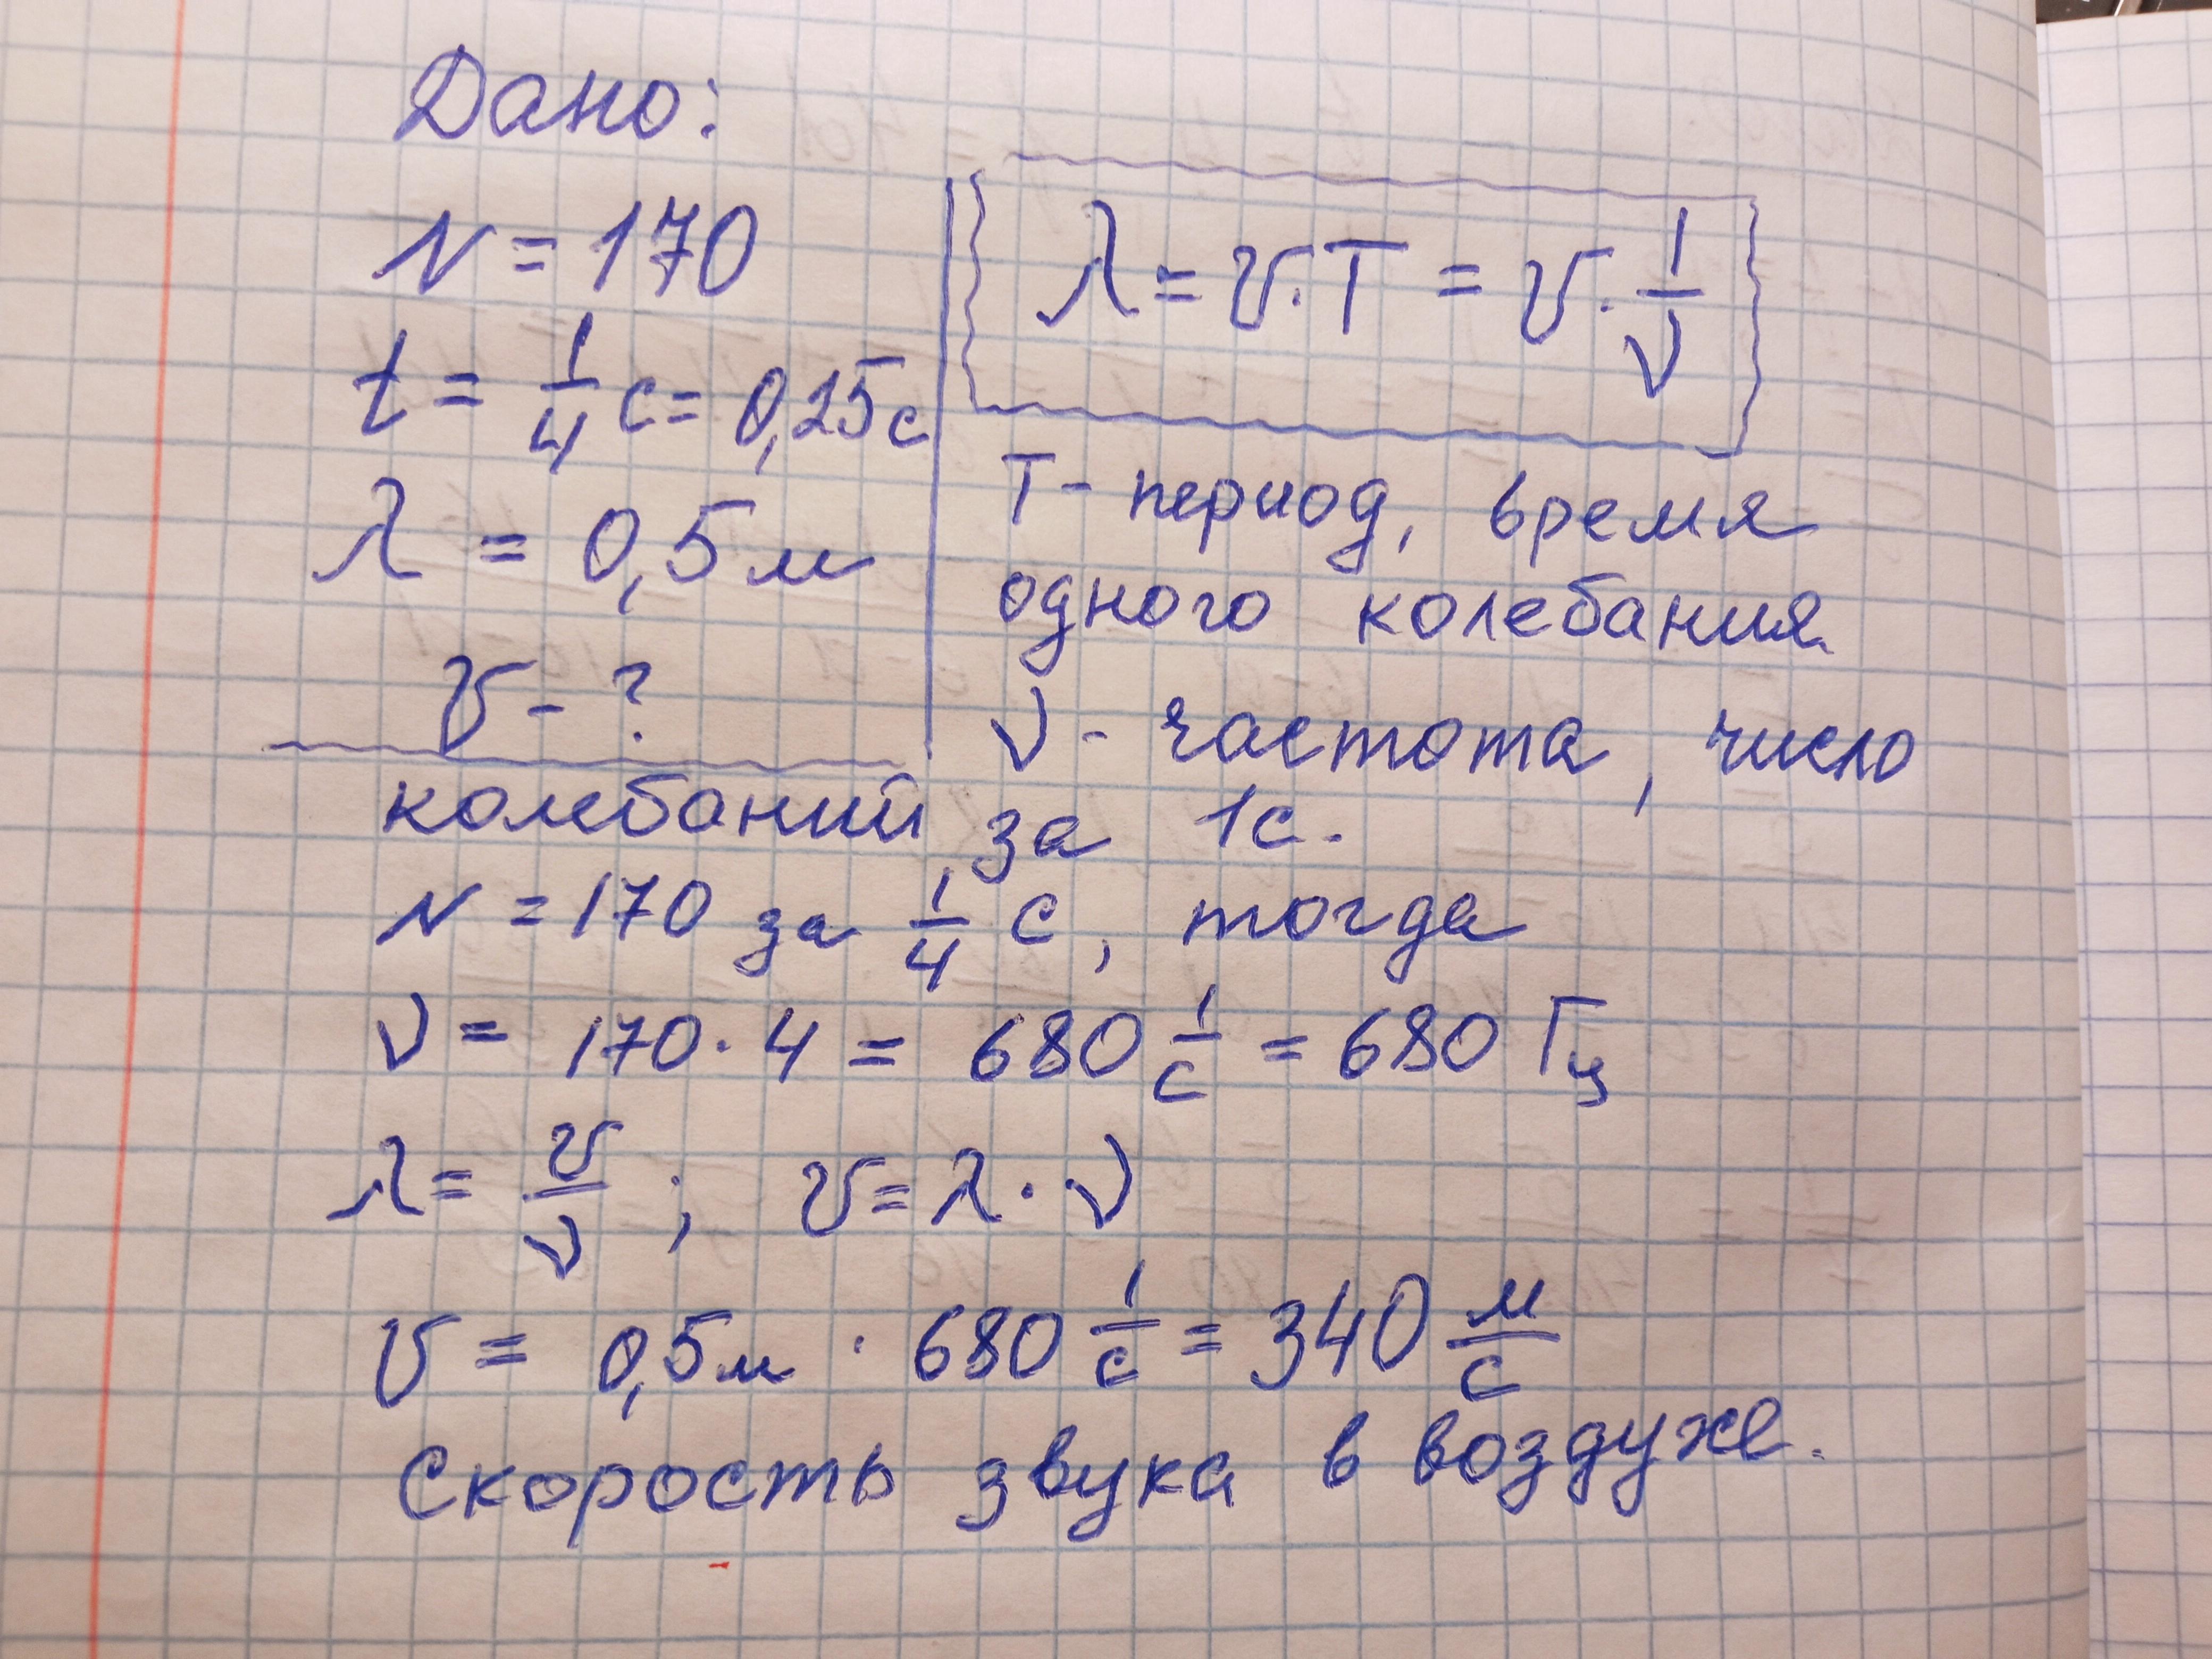 Дано:
N = 170
t = 1/4 с = 0,25 с
λ = 0,5 м
υ - ?
λ = υ · T = υ · 1/ν
T - период, время
одного колебания
ν - частота, число
колебаний за 1с.
N = 170 за 1/4 с, тогда
ν = 170 · 4 = 680 1/с = 680 Гц
λ = υ/ν ; υ = λ · ν
υ = 0,5 м · 680 1/с = 340 м/с
скорость звука в воздухе.